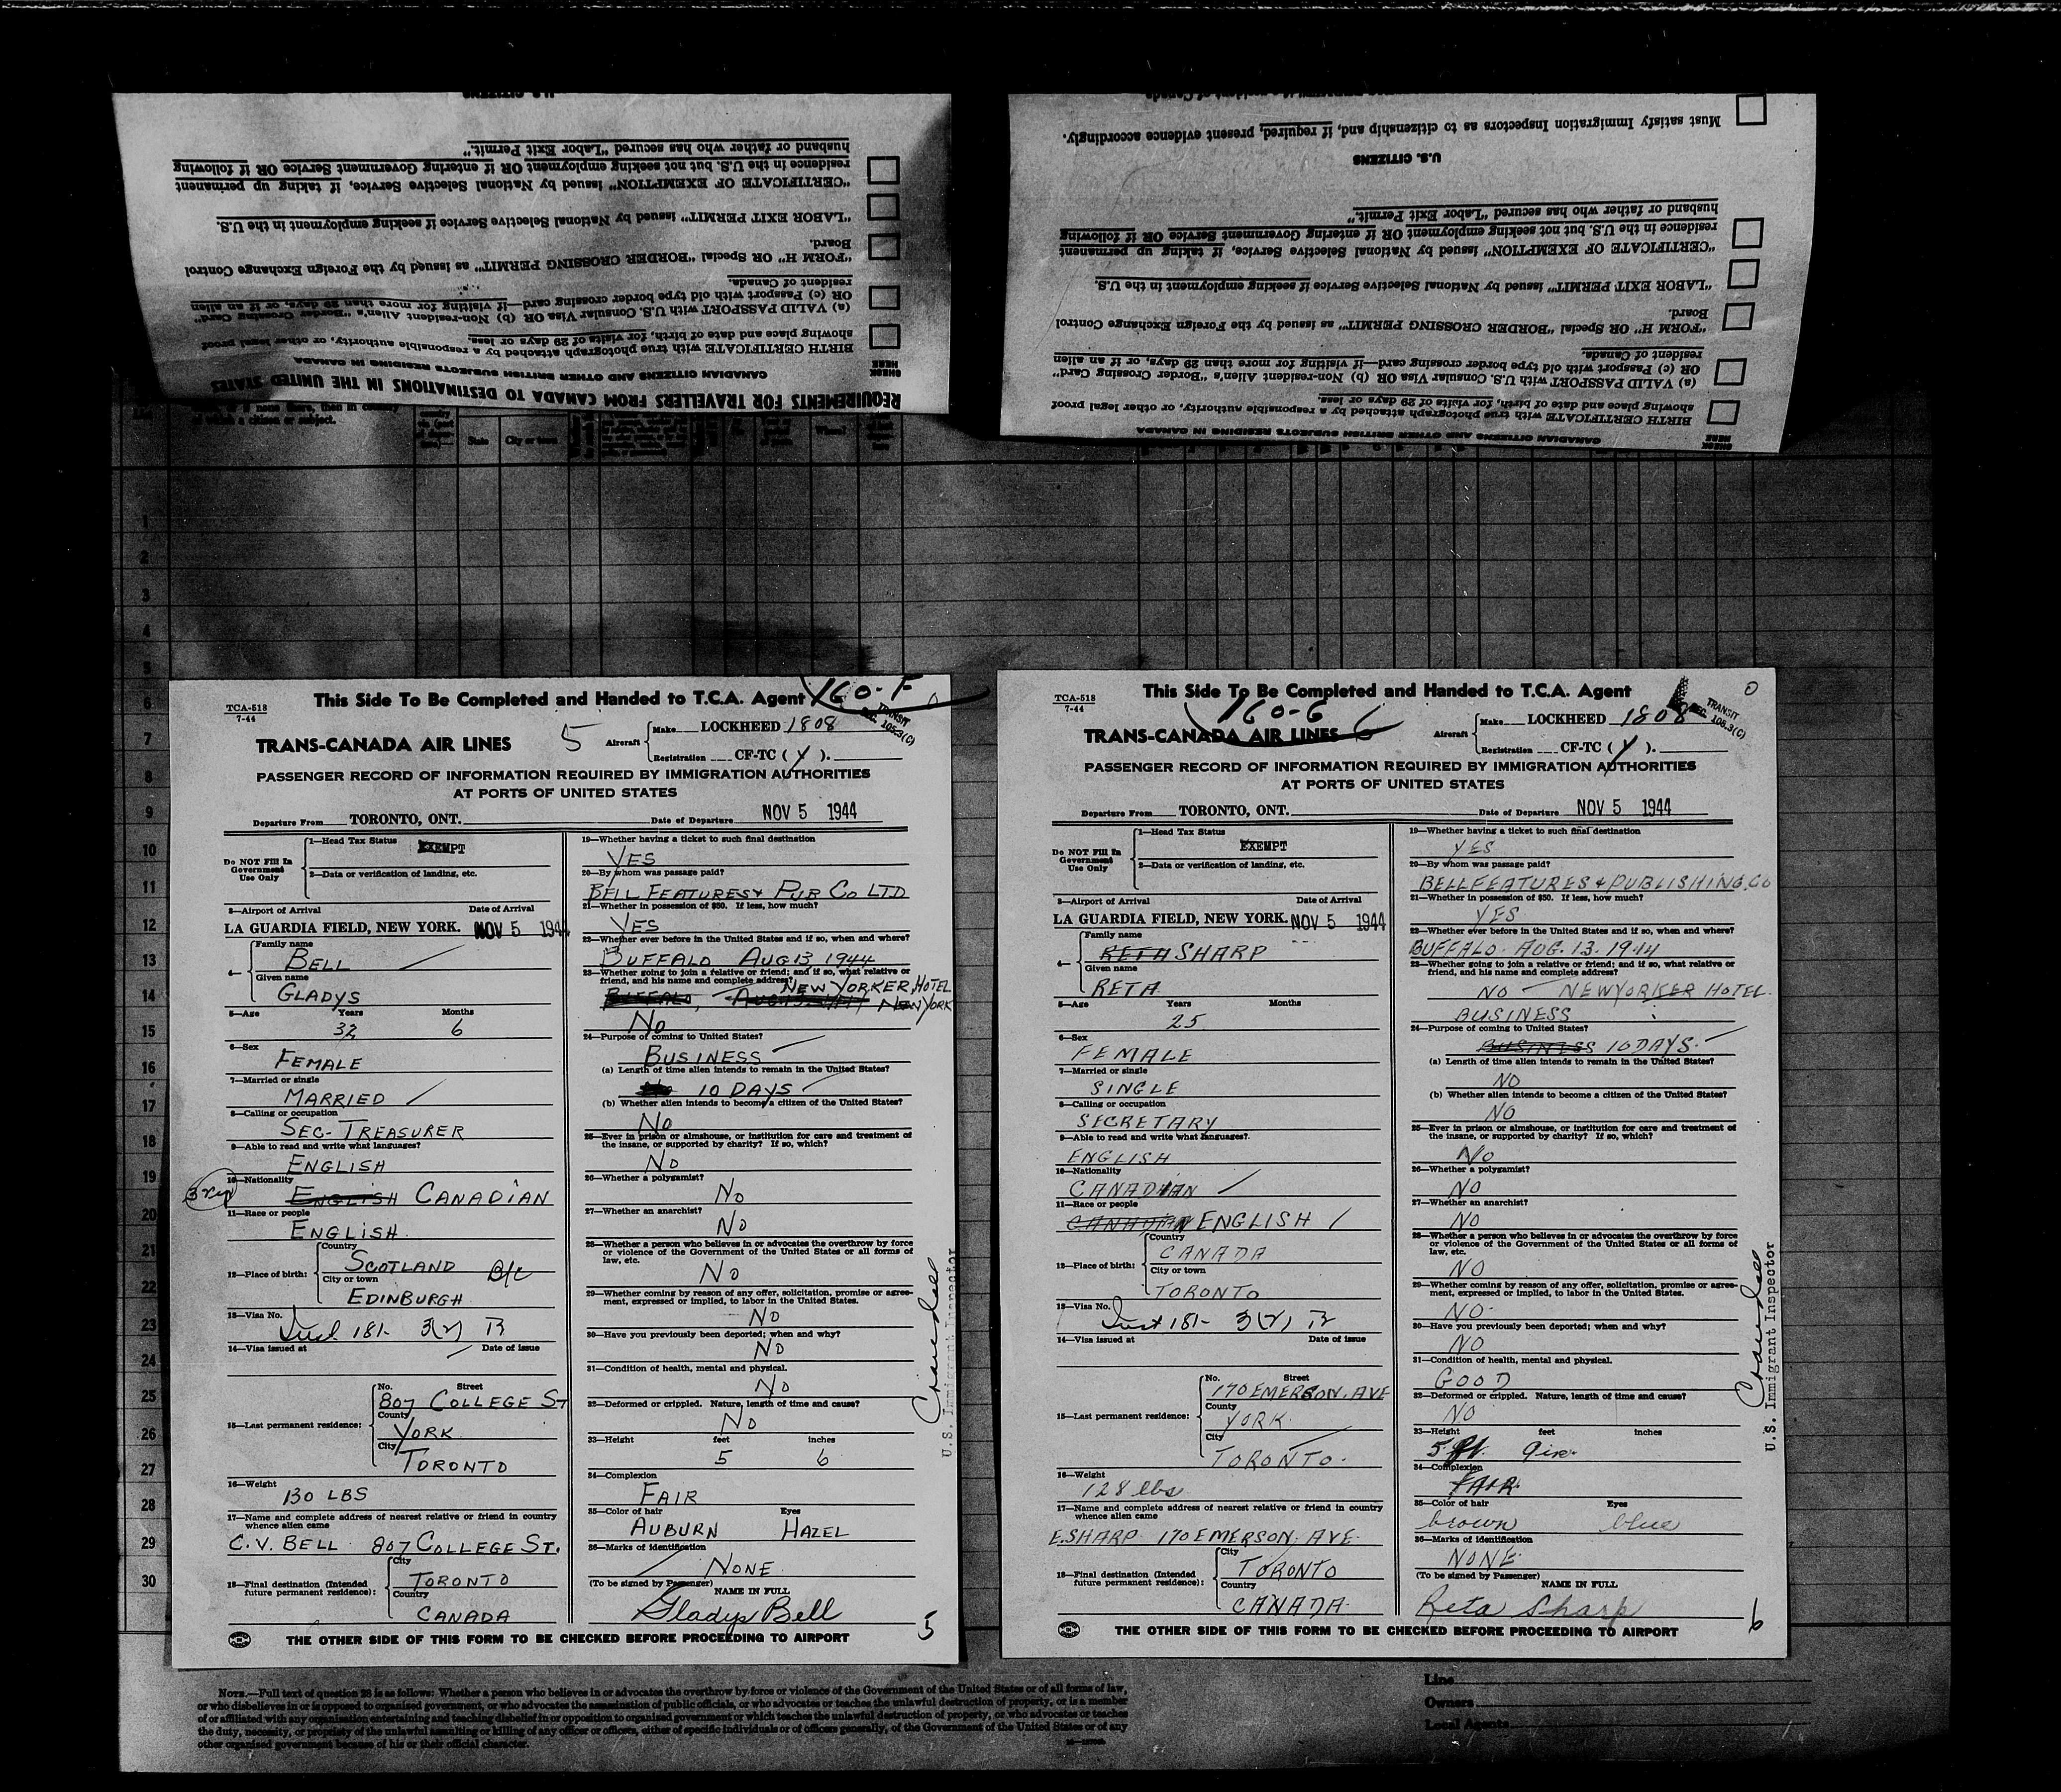 U.S. CITIZENS
husband or father who has secured "Labor Exit Permit."
residence in the U.S. but not seeking employment OR if entering Government Service OR if following
"CERTIFICATE OF EXEMPTION" issued by National Selective Service, if taking up permanent
"LABOR EXIT PERMIT" issued by National Selective Service if seeking employment in the U.S.
Board.
"FORM H" OR Special "BORDER CROSSING PERMIT" as issued by the Foreign Exchange Control
resident of Canada.
OR (c) Passport with old type border crossing card—if visiting for more than 29 days, or if an alien
(a) VALID PASSPORT with U.S. Consular Visa OR (b) Non-resident Alien's "Border Crossing Card"
showing place and date of birth, for visits of 29 days or less.
BIRTH CERTIFICATE with true photograph attached by a responsible authority, or other legal proof
CHECK HERE
CANADIAN CITIZENS AND OTHER BRITISH SUBJECTS RESIDING IN CANADA
REQUIREMENTS FOR TRAVELLERS FROM CANADA TO DESTINATIONS IN THE UNITED STATES
Must satisfy Immigration Inspectors as to citizenship and, if required, present evidence accordingly.
U.S. CITIZENS
husband or father who has secured "Labor Exit Permit."
residence in the U.S. but not seeking employment OR if entering Government Service OR if following
"CERTIFICATE OF EXEMPTION" issued by National Selective Service, if taking up permanent
"LABOR EXIT PERMIT" issued by National Selective Service if seeking employment in the U.S.
Board.
"FORM H" OR Special "BORDER CROSSING PERMIT" as issued by the Foreign Exchange Control
resident of Canada.
OR (c) Passport with old type border crossing card—if visiting for more than 29 days, or if an alien
(a) VALID PASSPORT with U.S. Consular Visa OR (b) Non-resident Alien's "Border Crossing Card"
showing place and date of birth, for visits of 29 days or less.
BIRTH CERTIFICATE with true photograph attached by a responsible authority, or other legal proof
CHECK HERE
CANADIAN CITIZENS AND OTHER BRITISH SUBJECTS RESIDING IN CANADA
State City or town
1
2
3
4
5
6
7
8
9
10
11
12
13
14
15
16
17
18
19
20
21
22
23
24
25
26
27
28
29
30
This Side To Be Completed and Handed to T.C.A. Agent 160-F
TCA-518
7-44
TRANSIT
SEC. 105.3(C)
5
Aircraft
Make LOCKHEED 1808
TRANS-CANADA AIR LINES
Registration CF-TC (Y).
PASSENGER RECORD OF INFORMATION REQUIRED BY IMMIGRATION AUTHORITIES
AT PORTS OF UNITED STATES
Departure From TORONTO, ONT. Date of Departure NOV 5 1944
Do NOT Fill In
Government
Use Only
1—Head Tax Status EXEMPT
2—Data or verification of landing, etc.
3—Airport of Arrival Date of Arrival
LA GUARDIA FIELD, NEW YORK. NOV 5 1944
4—
Family name
BELL
Given name
GLADYS
5—Age Years Months
32 6
6—Sex
FEMALE
7—Married or single
MARRIED
8—Calling or occupation
SEC-TREASURER
9—Able to read and write what languages?
ENGLISH
10—Nationality
ENGLISH CANADIAN
11—Race or people
ENGLISH.
12—Place of birth:
Country
SCOTLAND B/C
City or town
EDINBURGH
13—Visa No.
181- 3(2) B
14—Visa issued at Date of issue
15—Last permanent residence:
No. Street
807 COLLEGE ST
County
YORK
City
TORONTO
16—Weight
130 LBS
17—Name and complete address of nearest relative or friend in country
whence alien came
C.V. BELL 807 COLLEGE ST.
18—Final destination (Intended
future permanent residence):
City
TORONTO
Country
CANADA
19—Whether having a ticket to such final destination
YES
20—By whom was passage paid?
BELL FEATURES & PUB CO LTD
21—Whether in possession of $50. If less, how much?
YES
22—Whether ever before in the United States and if so, when and where?
BUFFALO AUG 13 1944
23—Whether going to join a relative or friend; and if so, what relative or
friend, and his name and complete address?
NEW YORKER HOTEL
BUFFALO, NEW YORK
NO
24—Purpose of coming to United States?
BUSINESS
(a) Length of time alien intends to remain in the United States?
10 DAYS
(b) Whether alien intends to become a citizen of the United States?
NO
25—Ever in prison or almshouse, or institution for care and treatment of
the insane, or supported by charity? If so, which?
NO
26—Whether a polygamist?
NO
27—Whether an anarchist?
NO
28—Whether a person who believes in or advocates the overthrow by force
or violence of the Government of the United States or all forms of
law, etc.
NO
29—Whether coming by reason of any offer, solicitation, promise or agree-
ment, expressed or implied, to labor in the United States.
NO
30—Have you previously been deported; when and why?
NO
31—Condition of health, mental and physical.
NO
32—Deformed or crippled. Nature, length of time and cause?
NO
33—Height feet inches
5 6
34—Complexion
FAIR
35—Color of hair Eyes
AUBURN HAZEL
36—Marks of identification
NONE
(To be signed by Passenger)
NAME IN FULL
Gladys Bell
5
U.S. Immigrant Inspector
THE OTHER SIDE OF THIS FORM TO BE CHECKED BEFORE PROCEEDING TO AIRPORT
This Side To Be Completed and Handed to T.C.A. Agent
TCA-518
7-44
160-G 6
TRANSIT
SEC. 105.3(C)
0
Aircraft
Make LOCKHEED 1808
TRANS-CANADA AIR LINES
Registration CF-TC (Y).
PASSENGER RECORD OF INFORMATION REQUIRED BY IMMIGRATION AUTHORITIES
AT PORTS OF UNITED STATES
Departure From TORONTO, ONT. Date of Departure NOV 5 1944
Do NOT Fill In
Government
Use Only
1—Head Tax Status EXEMPT
2—Data or verification of landing, etc.
3—Airport of Arrival Date of Arrival
LA GUARDIA FIELD, NEW YORK. NOV 5 1944
4—
Family name
RETA SHARP
Given name
RETA
5—Age Years Months
25
6—Sex
FEMALE
7—Married or single
SINGLE
8—Calling or occupation
SECRETARY
9—Able to read and write what languages?
ENGLISH
10—Nationality
CANADIAN
11—Race or people
CANADIAN ENGLISH
12—Place of birth:
Country
CANADA
City or town
TORONTO
13—Visa No.
181- 3(2) B
14—Visa issued at Date of issue
15—Last permanent residence:
No. Street
170 EMERSON. AVE
County
YORK.
City
TORONTO.
16—Weight
128 lbs
17—Name and complete address of nearest relative or friend in country
whence alien came
E.SHARP 170 EMERSON. AVE.
18—Final destination (Intended
future permanent residence):
City
TORONTO
Country
CANADA.
19—Whether having a ticket to such final destination
YES
20—By whom was passage paid?
BELL FEATURES & PUBLISHING. CO
21—Whether in possession of $50. If less, how much?
YES
22—Whether ever before in the United States and if so, when and where?
BUFFALO. AUG. 13. 1944
23—Whether going to join a relative or friend; and if so, what relative or
friend, and his name and complete address?
NO — NEWYORKER HOTEL.
BUSINESS
24—Purpose of coming to United States?
BUSINESS 10 DAYS.
(a) Length of time alien intends to remain in the United States?
NO
(b) Whether alien intends to become a citizen of the United States?
NO
25—Ever in prison or almshouse, or institution for care and treatment of
the insane, or supported by charity? If so, which?
NO
26—Whether a polygamist?
NO
27—Whether an anarchist?
NO
28—Whether a person who believes in or advocates the overthrow by force
or violence of the Government of the United States or all forms of
law, etc.
NO
29—Whether coming by reason of any offer, solicitation, promise or agree-
ment, expressed or implied, to labor in the United States.
NO.
30—Have you previously been deported; when and why?
NO
31—Condition of health, mental and physical.
GOOD
32—Deformed or crippled. Nature, length of time and cause?
NO
33—Height feet inches
5 ft. 9 in.
34—Complexion
FAIR.
35—Color of hair Eyes
brown blue
36—Marks of identification
NONE.
(To be signed by Passenger)
NAME IN FULL
Reta Sharp
6
U.S. Immigrant Inspector
THE OTHER SIDE OF THIS FORM TO BE CHECKED BEFORE PROCEEDING TO AIRPORT
NOTE.—Full text of question 28 is as follows: Whether a person who believes in or advocates the overthrow by force or violence of the Government of the United States or of all forms of law,
or who disbelieves in or is opposed to organized government, or who advocates the assassination of public officials, or who advocates or teaches the unlawful destruction of property, or is a member
of or affiliated with any organization entertaining and teaching disbelief in or opposition to organized government or which teaches the unlawful destruction of property, or who advocates or teaches
the duty, necessity, or propriety of the unlawful assaulting or killing of any officer or officers, either of specific individuals or of officers generally, of the Government of the United States or of any
other organized government because of his or their official character.
Line
Owners
Local Agents